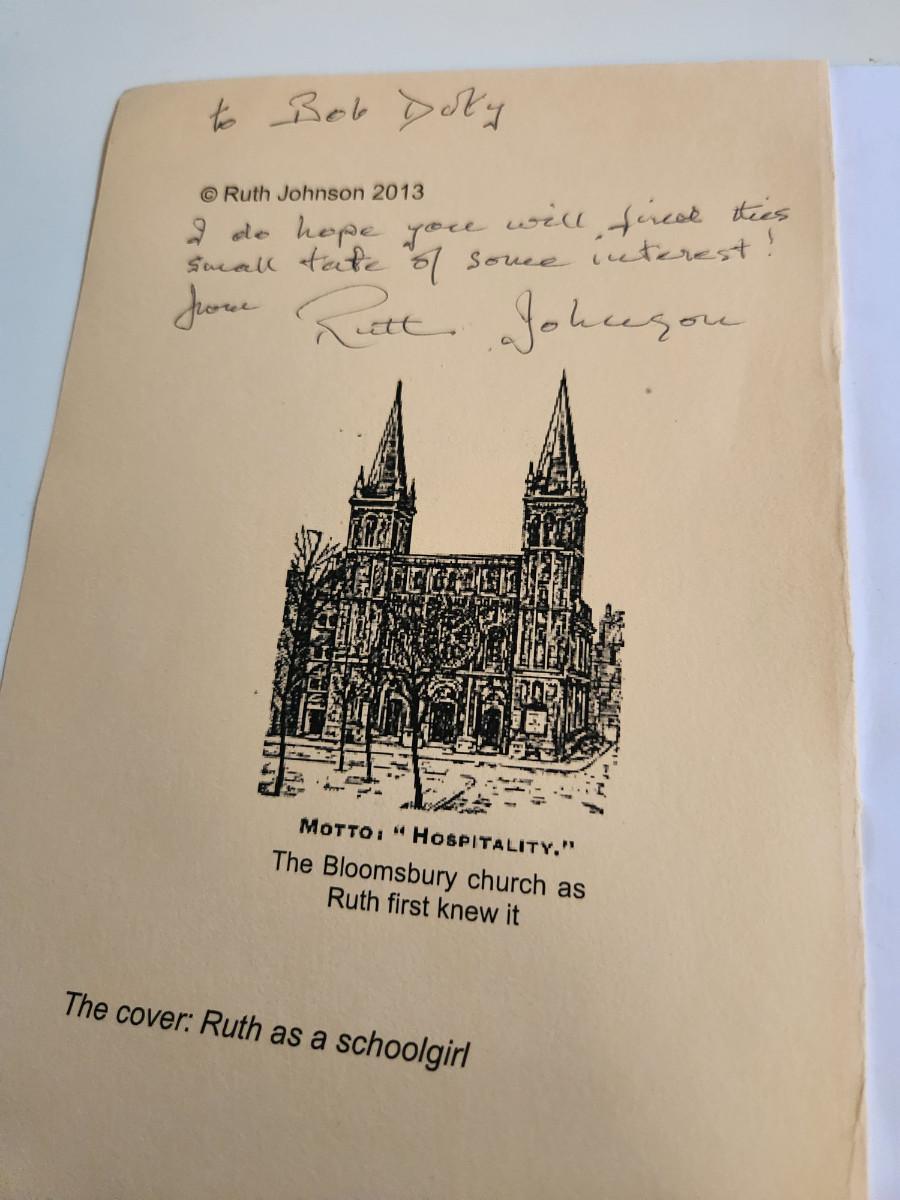 to Bob Doty
© Ruth Johnson 2013
I do hope you will find this
small tale of some interest!
from Ruth Johnson
MOTTO: "HOSPITALITY."
The Bloomsbury church as
Ruth first knew it
The cover: Ruth as a schoolgirl